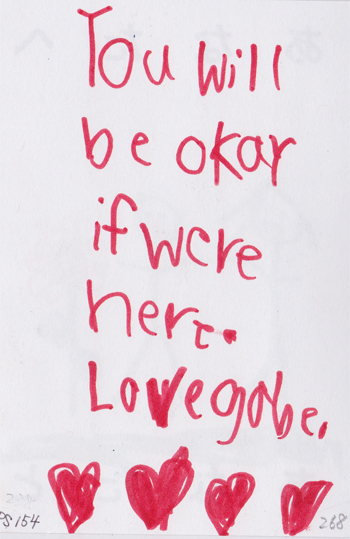 You will
be okay
if were
here.
Love gabe.
PS 154
268